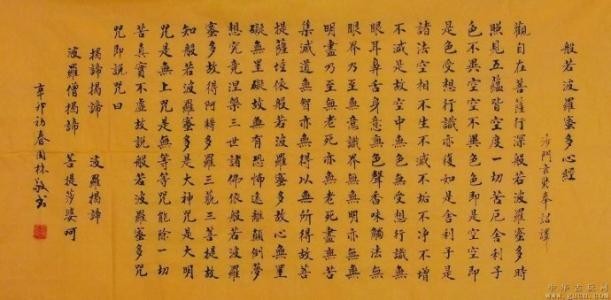 般若波羅蜜多心經
沙門玄奘奉詔譯
觀自在菩薩行深般若波羅蜜多時
照見五蘊皆空度一切苦厄舍利子
色不異空空不異色色即是空空即
是色受想行識亦復如是舍利子是
諸法空相不生不滅不垢不净不增
不減是故空中無色無受想行識無
眼耳鼻舌身意無色聲香味觸法無
眼界乃至無意識界無無明亦無無
明盡乃至無老死亦無老死盡無苦
集滅道無智亦無得以無所得故菩
提薩埵依般若波羅蜜多故心無罣
礙無罣礙故無有恐怖遠離顛倒夢
想究竟涅槃三世諸佛依般若波羅
蜜多故得阿耨多羅三藐三菩提故
知般若波羅蜜多是大神咒是大明
咒是無上咒是無等等咒能除一切
苦真實不虛故說般若波羅蜜多咒
咒即說咒曰
揭諦揭諦 波羅揭諦
波羅僧揭諦 菩提莎婆訶
辛卯初春國林敬書
中华古玩网
www.gucn.com